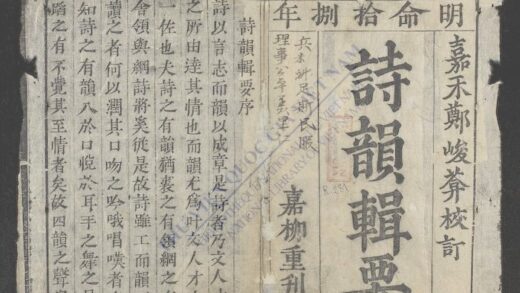 明命拾捌年
嘉禾鄭峻莽校訂
詩韻輯要
嘉柳重刊
詩韻輯要序
詩以言志而韻以成章是詩者乃文人才
之所由達其情也而韻尤爲叶文人才
一佐也夫詩之有韻猶裘之有領網之
會領與綱詩將奚從是故詩雖工而韻
讀之者何以潤其口吻之吟哦唱嘆者
知詩之有韻入於口悅於耳手之舞之足
蹈之有不覺其至情者矣故四韻之聲